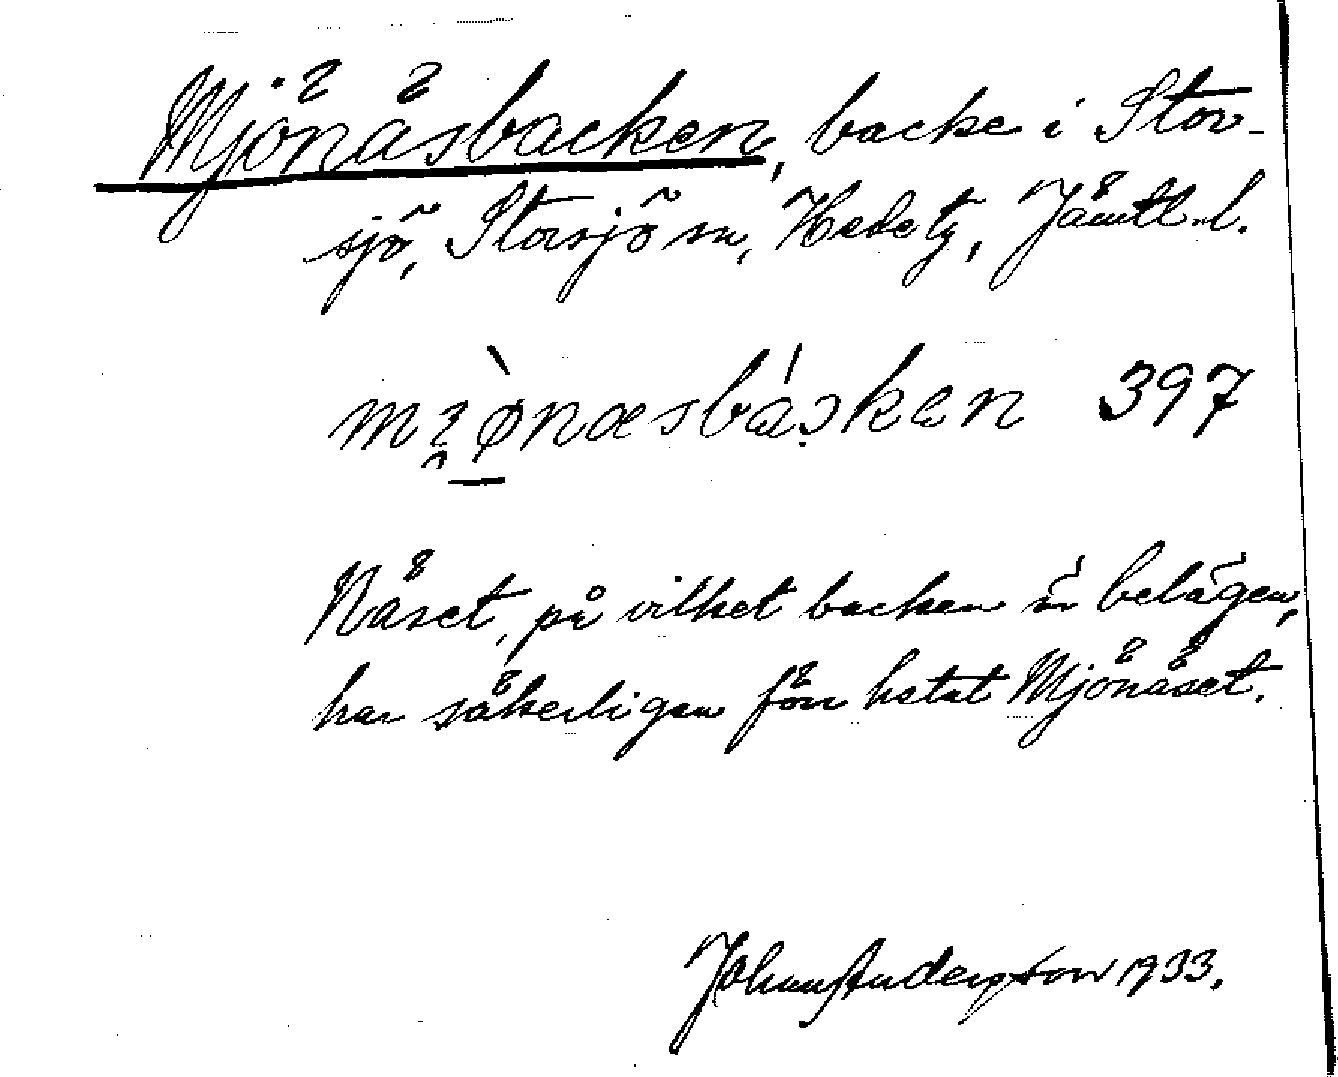 Mjönäsbacken, backe i Stor-
sjö, Storsjö sn, Hede tg, Jämtl. l.
mi̯ø̀næsbák̄en 397
Näset, på vilket backen är belägen,
har säkerligen förr hetat Mjönäset.
Johan Anderzson 1933.